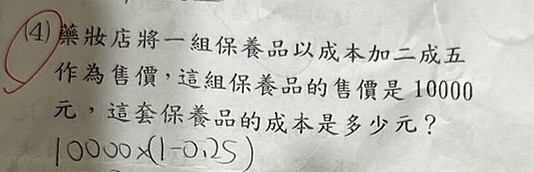 (4)藥妝店將一組保養品以成本加二成五
作為售價，這組保養品的售價是10000
元，這套保養品的成本是多少元？
10000×(1-0.25)